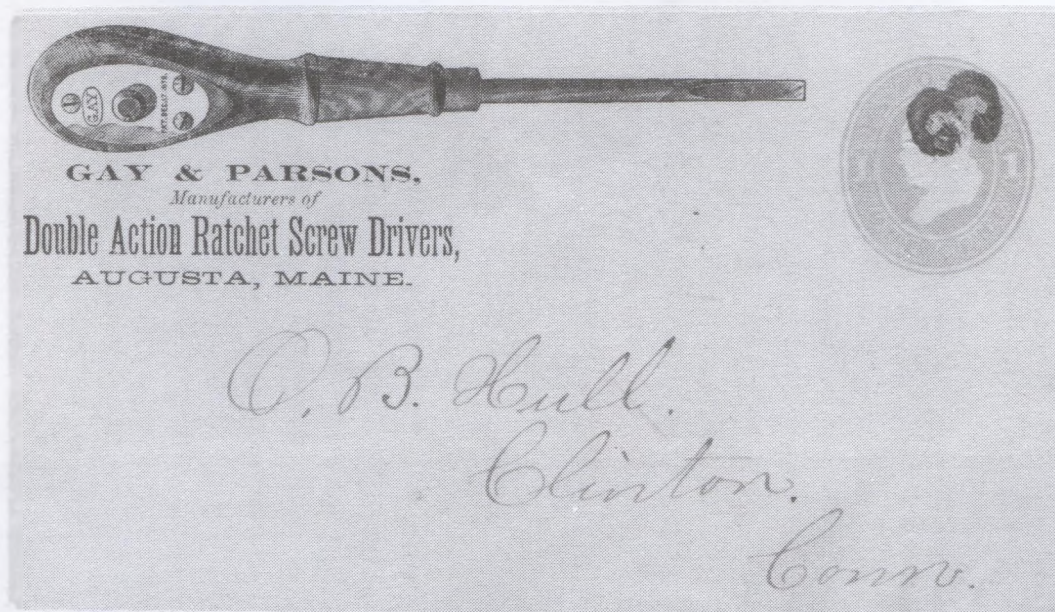 GAY
PAT. DEC. 17. 1878.
GAY & PARSONS,
Manufacturers of
Double Action Ratchet Screw Drivers,
AUGUSTA, MAINE.
O. B. Hull.
Clinton.
Conn.